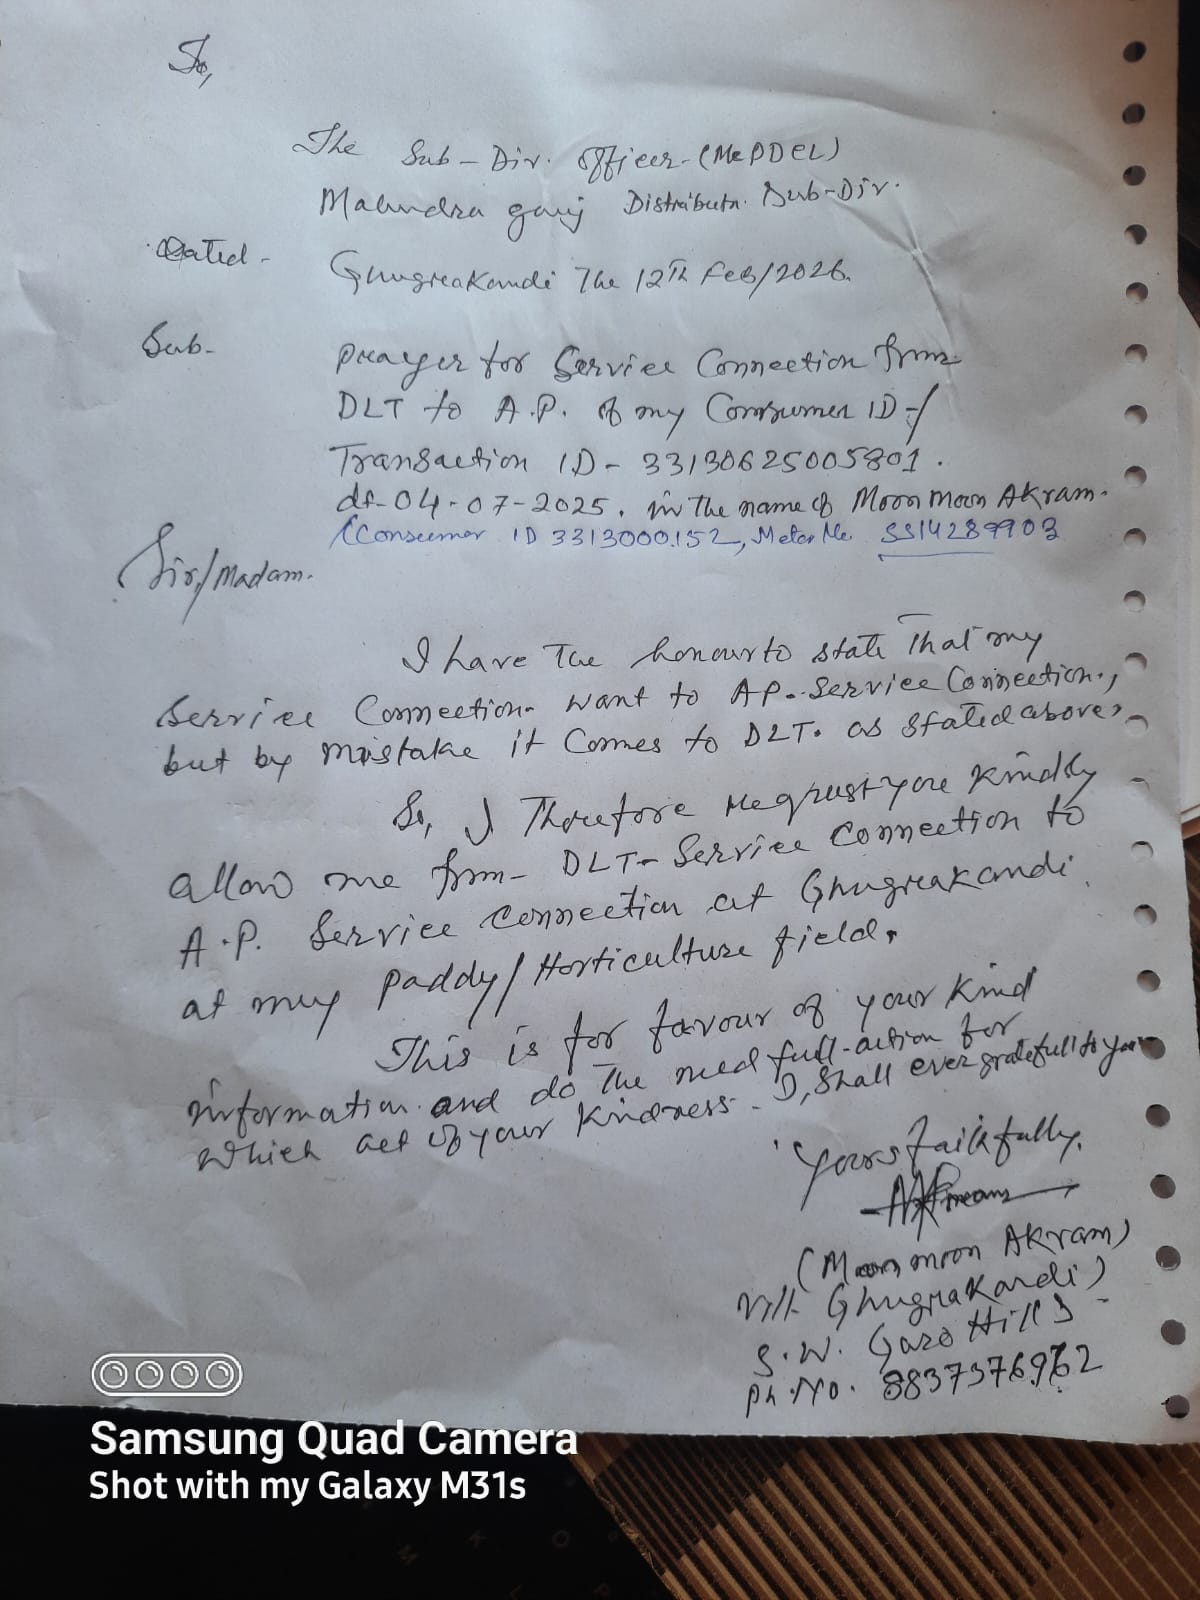 To,
The Sub-Div. Officer-(MePDCL)
Mahendraganj Distributn. Sub-Div.
Dated - Ghugreakandi The 12th Feb/2026.
Sub- Prayer for Service Connection from
DLT to A.P. of my Consumer ID-/
Transaction ID- 33130625005801.
dt-04-07-2025. in The name of Moon Moon Akram.
(Consumer ID 3313000152, Meter No. SS14289903
Sir/Madam.
I have The honour to state That my
Service Connection want to AP. Service Connection.,
but by mistake it Comes to DLT. as stated above,
So, I Therefore request you kindly
allow me from- DLT- Service Connection to
A.P. Service Connection at Ghugreakandi.
at my Paddy/Horticulture field.
This is for favour of your kind
information and do The need full-action for
which act of your kindness. I, Shall ever gratefull to you
Yours faithfully,
(Moon moon Akram)
Vill- Ghugrakandi)
S.W. Garo Hills
Ph.No. 8837376962
Samsung Quad Camera
Shot with my Galaxy M31s